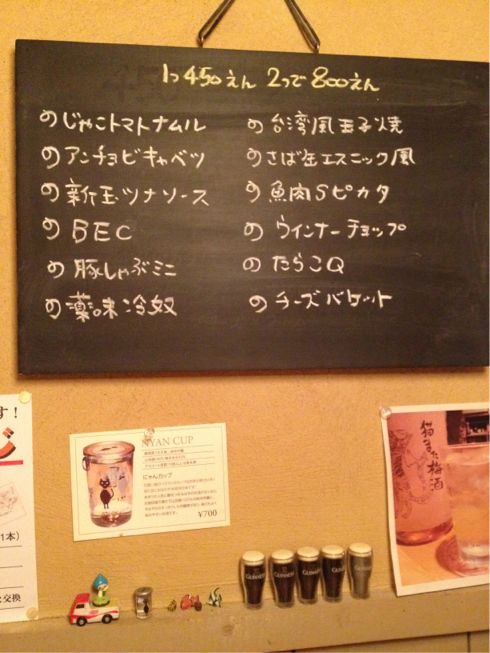 1つ450えん 2つで800えん
のじゃこトマトナムル
のアンチョビキャベツ
の新玉ツナソース
のBEC
の豚しゃぶミニ
の薬味冷奴
の台湾風玉子焼
のさば缶エスニック風
の魚肉Sピカタ
のウインナーチョップ
のたらこQ
のチーズバケット
す！
ジ
1本）
交換
NYAN CUP
にゃんカップ
¥700
猫また梅酒
GUINNESS
GUINNESS
GUINNESS
GUINNESS
GUINNESS